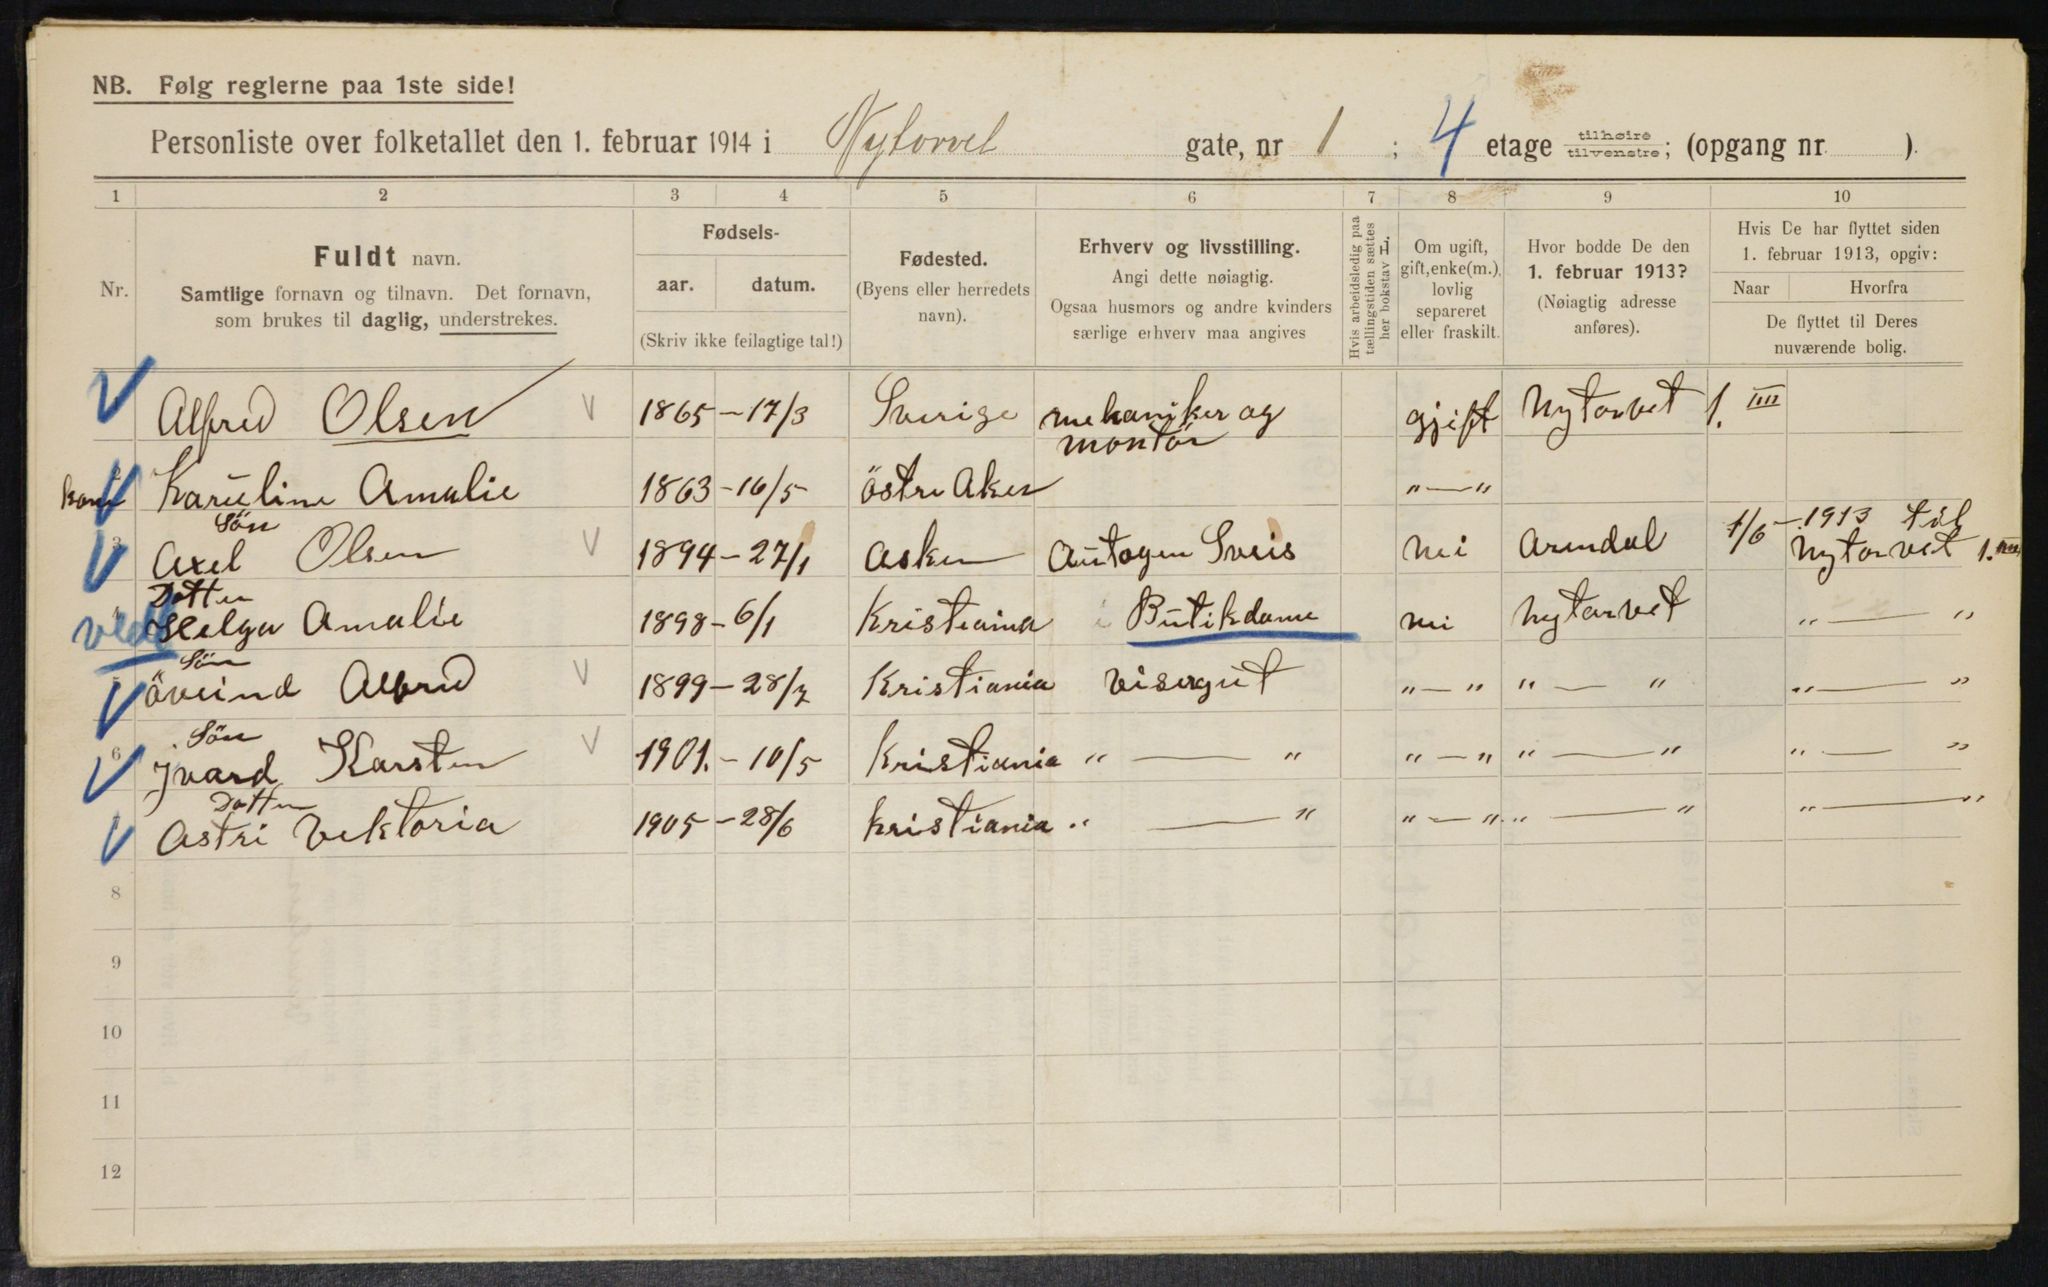 NB. Følg reglerne paa 1ste side!
Personliste over folketallet den 1. februar 1914 i Nytorvet gate, nr 1 ; 4 etage tilhøire tilvenstre; (opgang nr. ).
1 2 3 4 5 6 7 8 9 10
Nr.
Fuldt navn.
Samtlige fornavn og tilnavn. Det fornavn,
som brukes til daglig, understrekes.
Fødsels-
aar. datum.
(Skriv ikke feilagtige tal!)
Fødested.
(Byens eller herredets
navn).
Erhverv og livsstilling.
Angi dette nøiagtig.
Ogsaa husmors og andre kvinders
særlige erhverv maa angives
Hvis arbeidsledig paa
tællingstiden sættes
her bokstav L.
Om ugift,
gift, enke(m.),
lovlig
separeret
eller fraskilt.
Hvor bodde De den
1. februar 1913?
(Nøiagtig adresse
anføres).
Hvis De har flyttet siden
1. februar 1913, opgiv:
Naar Hvorfra
De flyttet til Deres
nuværende bolig.
Alfred Olsen V 1865 - 17/3 Sverige mekaniker og gjift Nytorvet 1. IIII
montör
kone Karuline Amalie 1863 - 16/5 östre Aker " — "
Sön
3 Axel Olsen V 1894 - 27/1 Asker Autogen Sveis nei Arendal 1/6 - 1913 til
Nytorvet 1. IIII
Datter
Helga Amalie 1898 - 6/1 Kristiania Butikdame nei Nytorvet " — "
Sön
5 öveind Alfred V 1899 - 28/7 Kristiania visergut " — " " — " " — "
Sön
6 Jvard Karsten V 1901. - 10/5 Kristiania " — " " — " " — " " — "
Datter
Astri Viktoria 1905 - 28/6 Kristiania " — " " — " " — " " — "
8
9
10
11
12